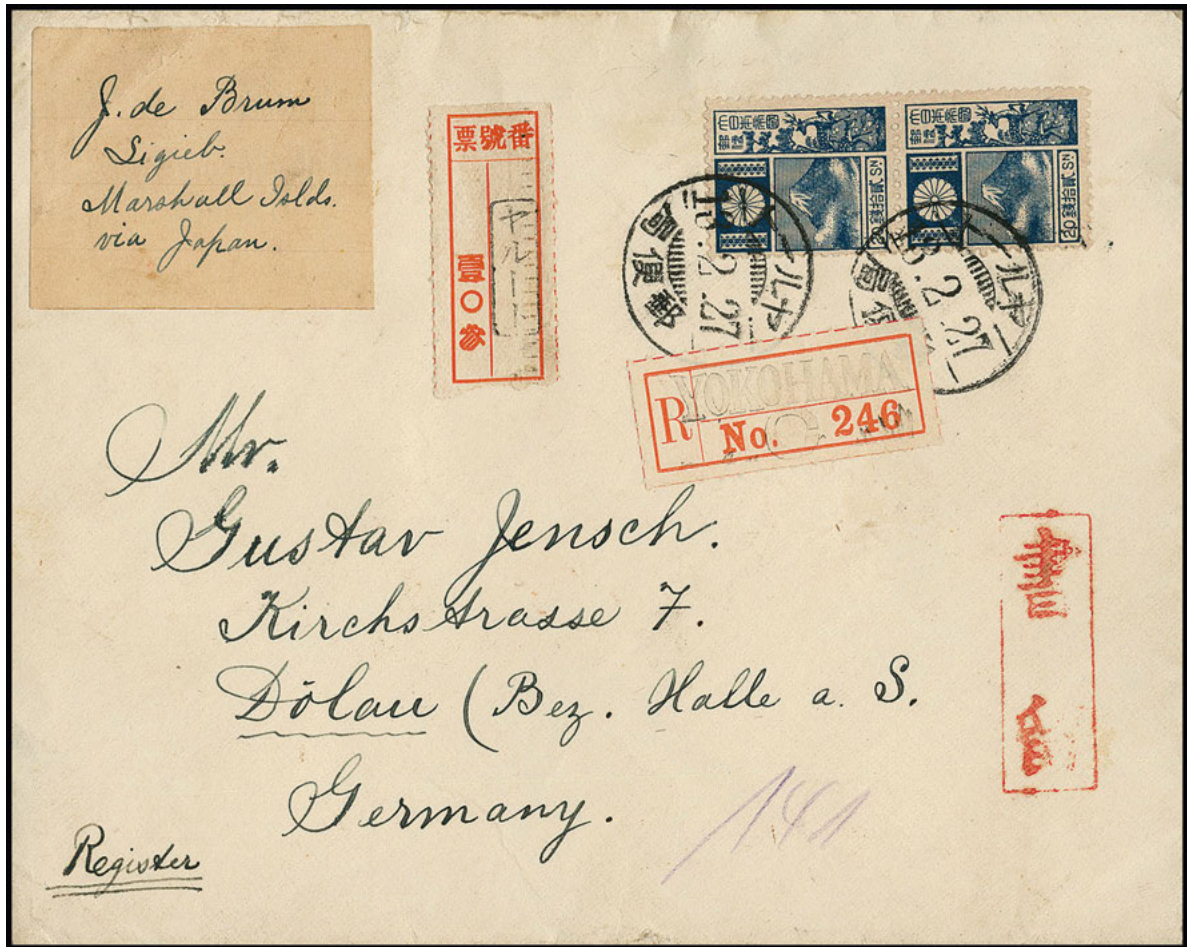 J. de Brum
Ligieb.
Marshall Islds.
via Japan.
番號票
ヤルート
壹〇参
大日本帝國
郵便
貳拾錢
20 SN
大日本帝國
郵便
貳拾錢
20 SN
ヤルート
.2.27
郵便局
ヤルート
.2.27
YOKOHAMA
R No. 246
Mr.
Gustav Jensch.
Kirchstrasse 7.
Dölau (Bez. Halle a. S.
Germany.
Register
書留